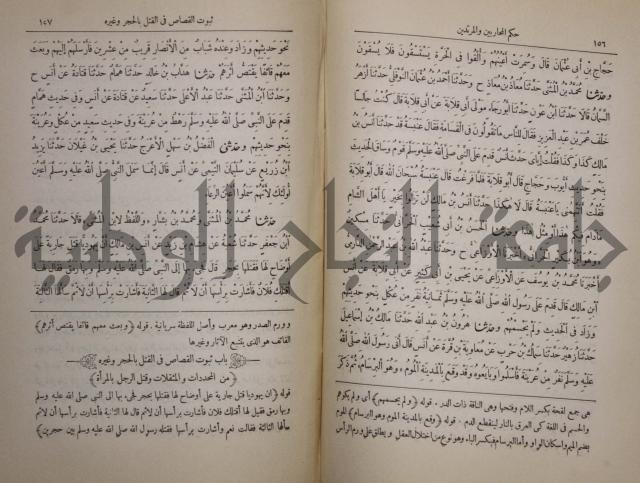 ١٥٦
حكم المحاربين والمرتدين
حَجَّاجِ بْنِ أَبِي عُثْمَانَ قَالَ وَسُمِرَتْ أَعْيُنُهُمْ وَأُلْقُوا فِى الْحَرَّةِ يَسْتَسْقُونَ فَلَا يُسْقَوْنَ
وحَدَّثَنَا مُحَمَّدُ بْنُ الْمُثَنَّى حَدَّثَنَا مُعَاذُ بْنُ مُعَاذٍ ح وَحَدَّثَنَا أَحْمَدُ بْنُ عُثْمَانَ النَّوْفَلِيُّ حَدَّثَنَا أَزْهَرُ
السَّمَّانُ قَالَا حَدَّثَنَا ابْنُ عَوْنٍ حَدَّثَنَا أَبُو رَجَاءٍ مَوْلَى أَبِى قِلَابَةَ عَنْ أَبِى قِلَابَةَ قَالَ كُنْتُ جَالِسًا
خَلْفَ عُمَرَ بْنِ عَبْدِ الْعَزِيزِ فَقَالَ لِلنَّاسِ مَا تَقُولُونَ فِى الْقَسَامَةِ فَقَالَ عَنْبَسَةُ قَدْ حَدَّثَنَا أَنَسُ بْنُ
مَالِكٍ كَذَا وَكَذَا فَقُلْتُ إِيَّاىَ حَدَّثَ أَنَسٌ قَدِمَ عَلَى النَّبِيِّ صَلَّى اللهُ عَلَيْهِ وَسَلَّمَ قَوْمٌ وَسَاقَ الْحَدِيثَ
بِنَحْوِ حَدِيثِ أَيُّوبَ وَحَجَّاجٍ قَالَ أَبُو قِلَابَةَ فَلَمَّا فَرَغْتُ قَالَ عَنْبَسَةُ سُبْحَانَ اللهِ قَالَ أَبُو قِلَابَةَ
فَقُلْتُ أَتَتَّهِمُنِى يَا عَنْبَسَةُ قَالَ لَا هٰكَذَا حَدَّثَنَا أَنَسُ بْنُ مَالِكٍ لَنْ تَزَالُوا بِخَيْرٍ يَا أَهْلَ الشَّامِ
مَادَامَ فِيكُمْ هٰذَا أَوْ مِثْلُ هٰذَا وحَدَّثَنَا الْحَسَنُ بْنُ أَبِى شُعَيْبٍ الْحَرَّانِيُّ حَدَّثَنَا مِسْكِينٌ
وَهُوَ ابْنُ بُكَيْرٍ الْحَرَّانِيُّ أَخْبَرَنَا الْأَوْزَاعِيُّ ح وَحَدَّثَنَا عَبْدُ اللهِ بْنُ عَبْدِ الرَّحْمٰنِ الدَّارِمِيُّ
أَخْبَرَنَا مُحَمَّدُ بْنُ يُوسُفَ عَنِ الْأَوْزَاعِيِّ عَنْ يَحْيَى بْنِ أَبِى كَثِيرٍ عَنْ أَبِى قِلَابَةَ عَنْ أَنَسِ
ابْنِ مَالِكٍ قَالَ قَدِمَ عَلَى رَسُولِ اللهِ صَلَّى اللهُ عَلَيْهِ وَسَلَّمَ ثَمَانِيَةُ نَفَرٍ مِنْ عُكْلٍ بِنَحْوِ حَدِيثِهِمْ
وَزَادَ فِى الْحَدِيثِ وَلَمْ يَحْسِمْهُمْ وحَدَّثَنَا هٰرُونُ بْنُ عَبْدِ اللهِ حَدَّثَنَا مَالِكُ بْنُ إِسْمَاعِيلَ
حَدَّثَنَا زُهَيْرٌ حَدَّثَنَا سِمَاكُ بْنُ حَرْبٍ عَنْ مُعَاوِيَةَ بْنِ قُرَّةَ عَنْ أَنَسٍ قَالَ أَتَى رَسُولَ اللهِ صَلَّى اللهُ
عَلَيْهِ وَسَلَّمَ نَفَرٌ مِنْ عُرَيْنَةَ فَأَسْلَمُوا وَبَايَعُوهُ وَقَدْ وَقَعَ بِالْمَدِينَةِ الْمُومُ «وَهُوَ الْبِرْسَامُ» ثُمَّ ذَكَرَ
هى جمع لقحة بكسر اللام وفتحها وهى الناقة ذات الدر. قوله ﴿ولم يحسمهم﴾ أى ولم يكوهم
والحسم فى اللغة كى العرق بالنار لينقطع الدم. قوله ﴿وقع بالمدينة الموم وهو البرسام﴾ الموم
بضم الميم واسكان الواو وأما البرسام فبكسر الباء وهو نوع من اختلال العقل ويطلق على ورم الرأس
ثبوت القصاص فى القتل بالحجر وغيره
١٥٧
نَحْوَ حَدِيثِهِمْ وَزَادَ وَعِنْدَهُ شَبَابٌ مِنَ الْأَنْصَارِ قَرِيبٌ مِنْ عِشْرِينَ فَأَرْسَلَهُمْ إِلَيْهِمْ وَبَعَثَ
مَعَهُمْ قَائِفًا يَقْتَصُّ أَثَرَهُمْ حَدَّثَنَا هَدَّابُ بْنُ خَالِدٍ حَدَّثَنَا هَمَّامٌ حَدَّثَنَا قَتَادَةُ عَنْ أَنَسٍ ح
وَحَدَّثَنَا ابْنُ الْمُثَنَّى حَدَّثَنَا عَبْدُ الْأَعْلَى حَدَّثَنَا سَعِيدٌ عَنْ قَتَادَةَ عَنْ أَنَسٍ وَفِى حَدِيثِ هَمَّامٍ
قَدِمَ عَلَى النَّبِيِّ صَلَّى اللهُ عَلَيْهِ وَسَلَّمَ رَهْطٌ مِنْ عُرَيْنَةَ وَفِى حَدِيثِ سَعِيدٍ مِنْ عُكْلٍ وَعُرَيْنَةَ
بِنَحْوِ حَدِيثِهِمْ وحَدَّثَنِى الْفَضْلُ بْنُ سَهْلٍ الْأَعْرَجُ حَدَّثَنَا يَحْيَى بْنُ غَيْلَانَ حَدَّثَنَا يَزِيدُ
ابْنُ زُرَيْعٍ عَنْ سُلَيْمَانَ التَّيْمِيِّ عَنْ أَنَسٍ قَالَ إِنَّمَا سَمَلَ النَّبِيُّ صَلَّى اللهُ عَلَيْهِ وَسَلَّمَ أَعْيُنَ
أُولٰئِكَ لِأَنَّهُمْ سَمَلُوا أَعْيُنَ الرِّعَاءِ
حَدَّثَنَا مُحَمَّدُ بْنُ الْمُثَنَّى وَمُحَمَّدُ بْنُ بَشَّارٍ «وَاللَّفْظُ لِابْنِ الْمُثَنَّى» قَالَا حَدَّثَنَا مُحَمَّدُ
ابْنُ جَعْفَرٍ حَدَّثَنَا شُعْبَةُ عَنْ هِشَامِ بْنِ زَيْدٍ عَنْ أَنَسِ بْنِ مَالِكٍ أَنَّ يَهُودِيًّا قَتَلَ جَارِيَةً عَلَى
أَوْضَاحٍ لَهَا فَقَتَلَهَا بِحَجَرٍ قَالَ فَجِىءَ بِهَا إِلَى النَّبِيِّ صَلَّى اللهُ عَلَيْهِ وَسَلَّمَ وَبِهَا رَمَقٌ فَقَالَ لَهَا
أَقَتَلَكِ فُلَانٌ فَأَشَارَتْ بِرَأْسِهَا أَنْ لَا ثُمَّ قَالَ لَهَا الثَّانِيَةَ فَأَشَارَتْ بِرَأْسِهَا أَنْ لَا ثُمَّ سَأَلَهَا الثَّالِثَةَ
وورم الصدر وهو معرب وأصل اللفظة سريانية. قوله ﴿وبعث معهم قائفا يقتص أثرهم﴾
القائف هو الذى يتتبع الآثار وغيرها
باب ثبوت القصاص فى القتل بالحجر وغيره
﴿من المحددات والمثقلات وقتل الرجل بالمرأة﴾
قوله ﴿ان يهوديا قتل جارية على أوضاح لها فقتلها بحجر فجىء بها الى النبى صلى الله عليه وسلم
وبها رمق فقيل لها أقتلك فلان فأشارت برأسها أن لا ثم قال لها الثانية فأشارت برأسها أن لا ثم
سألها الثالثة فقالت نعم وأشارت برأسها فقتله رسول الله صلى الله عليه وسلم بين حجرين﴾
جامعة النجاح الوطنية